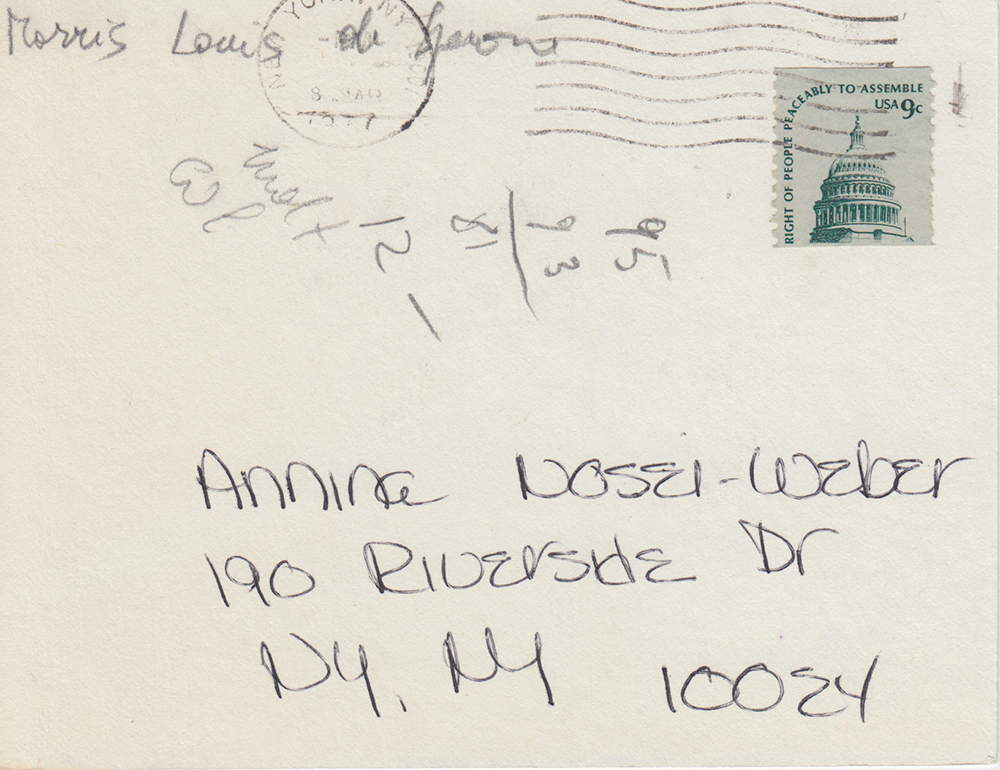 Morris Louis
YORK, NY
MAR
1977
RIGHT OF PEOPLE PEACEABLY TO ASSEMBLE
USA 9c
95
93
81
12
Annina Nosei-Weber
190 Riverside Dr
NY, NY 10024